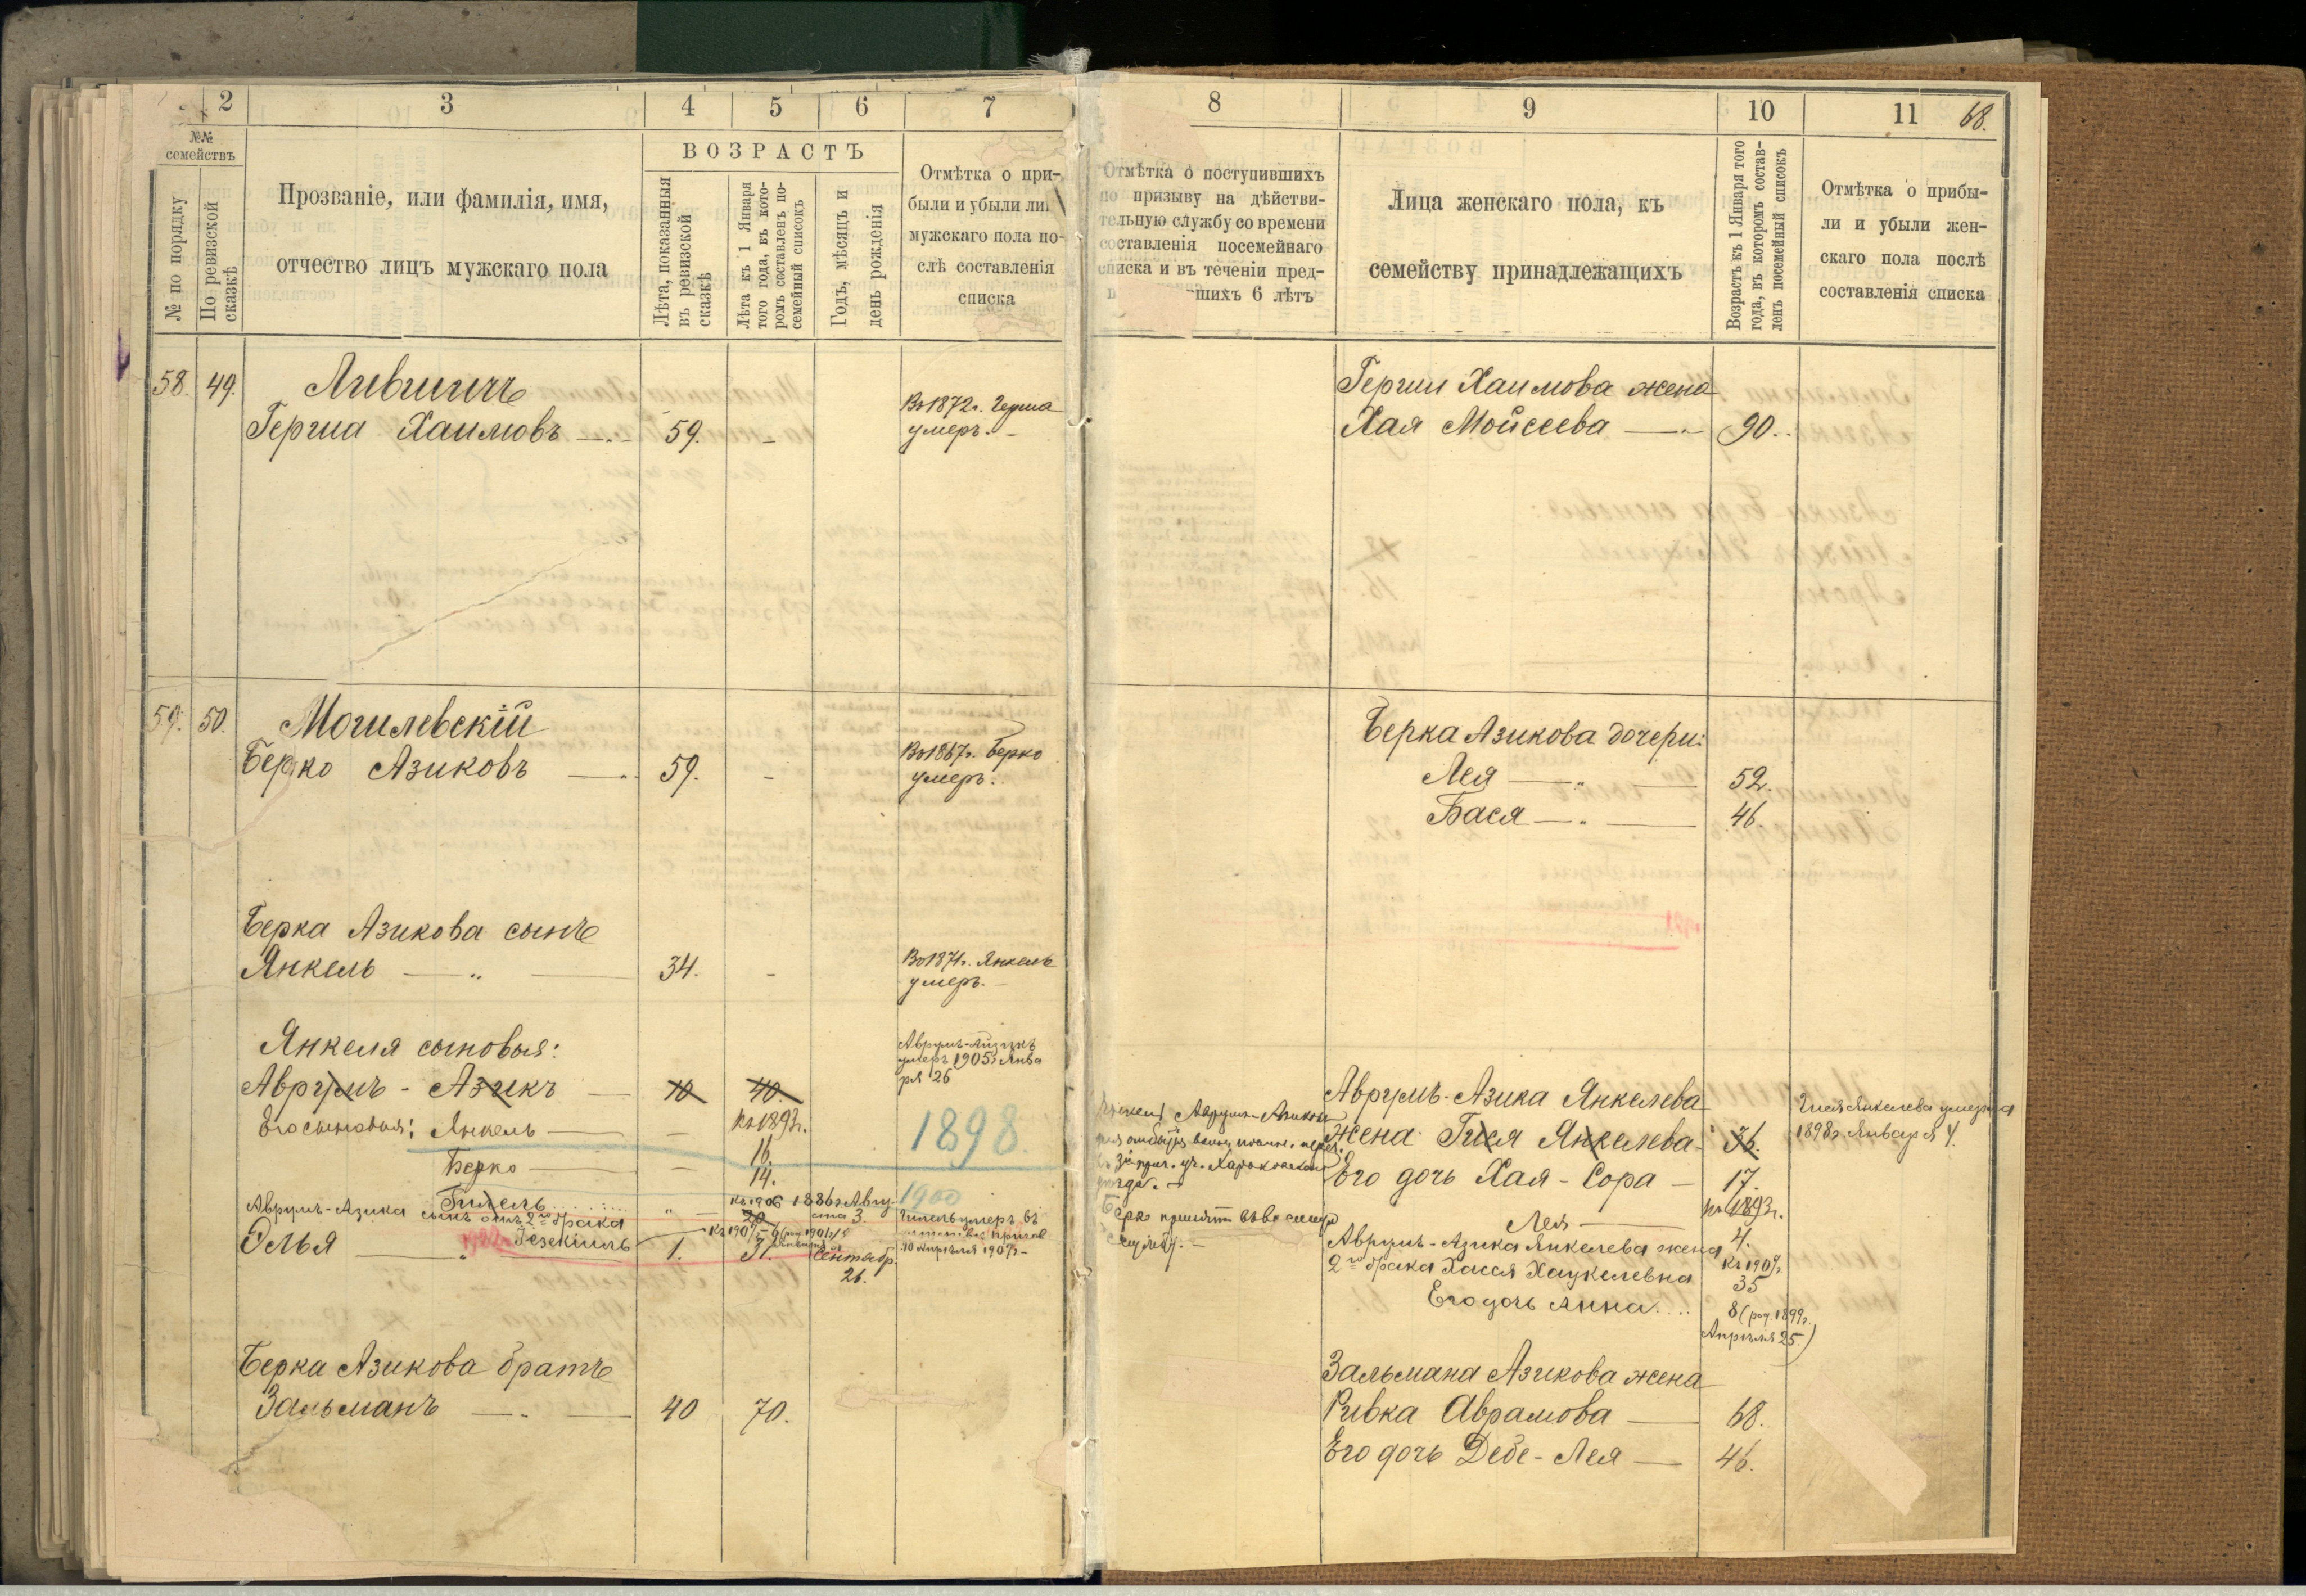 2
3
4
5
6
7
№№ семействъ
№ по порядку
По ревизской сказкѣ
Прозваніе, или фамилія, имя,
отчество лицъ мужскаго пола
ВОЗРАСТЪ
Лѣта, показанныя
въ ревизской
сказкѣ
Лѣта къ 1 Января
того года, въ кото-
ромъ составленъ по-
семейный списокъ
Годъ, мѣсяцъ и
день рожденія
Отмѣтка о при-
были и убыли
мужскаго пола по-
слѣ составленія
списка
58. 49. Лившичъ
Гершa Хаимовъ 59. -
Въ 1872г. Герша
умеръ.
59. 50. Могилевскій
Берко Азиковъ 59. -
Въ 1867г. Берко
умеръ.
Берка Азикова сынъ
Янкель — „ — 34. -
Въ 1871г. Янкель
умеръ.
Янкеля сыновья:
Аврумъ-Азикъ — 10 40.
Аврумъ-Айзикъ
умеръ 1905г. Янва
ря 26
Его сыновья: Янкель — — къ 1893г.
16.
1898.
Берко — — 14.
Гилель
къ 1906 1886г. Авгу-
20 ста 3.
1900
Аврумъ-Азика сынъ отъ 2го брака
Іезекіиль
Гилель умеръ въ
10 Апрѣля 1907г.
Элья — „ 1. 31. Сентябр.
26.
Берка Азикова братъ
Зальманъ — „ — 40 70.
8
9
10
11
68.
Отмѣтка о поступившихъ
по призыву на дѣйстви-
тельную службу со времени
составленія посемейнаго
списка и въ теченіи пред-
шихъ 6 лѣтъ
Лица женскаго пола, къ
семейству принадлежащихъ
Возрастъ къ 1 Января того
года, въ которомъ состав-
ленъ посемейный списокъ
Отмѣтка о прибы-
ли и убыли жен-
скаго пола послѣ
составленія списка
Герши Хаимова жена
Хая Мойсеева — 90.
Берка Азикова дочери:
Лея — „ — 52.
Бася — „ — 46.
Янкель Аврумъ-Азиковъ
уч. Харьковскаго
уѣзда.
Берко принятъ въ
службу.
Аврумъ-Азика Янкелева
жена Гися Янкелева 36.
Гися Янкелева умерла
1898г. Января 4.
Его дочь Хая-Сора — 17.
къ 1893г.
Лея — 4.
Аврумъ-Азика Янкелева жена
2го брака Хася Хацкелевна
къ 1907г.
35
Его дочь Анна
8 (род. 1899г.
Апрѣля 25.)
Зальмана Азикова жена
Ривка Аврамова — 68.
Его дочь Дебе-Лея — 46.